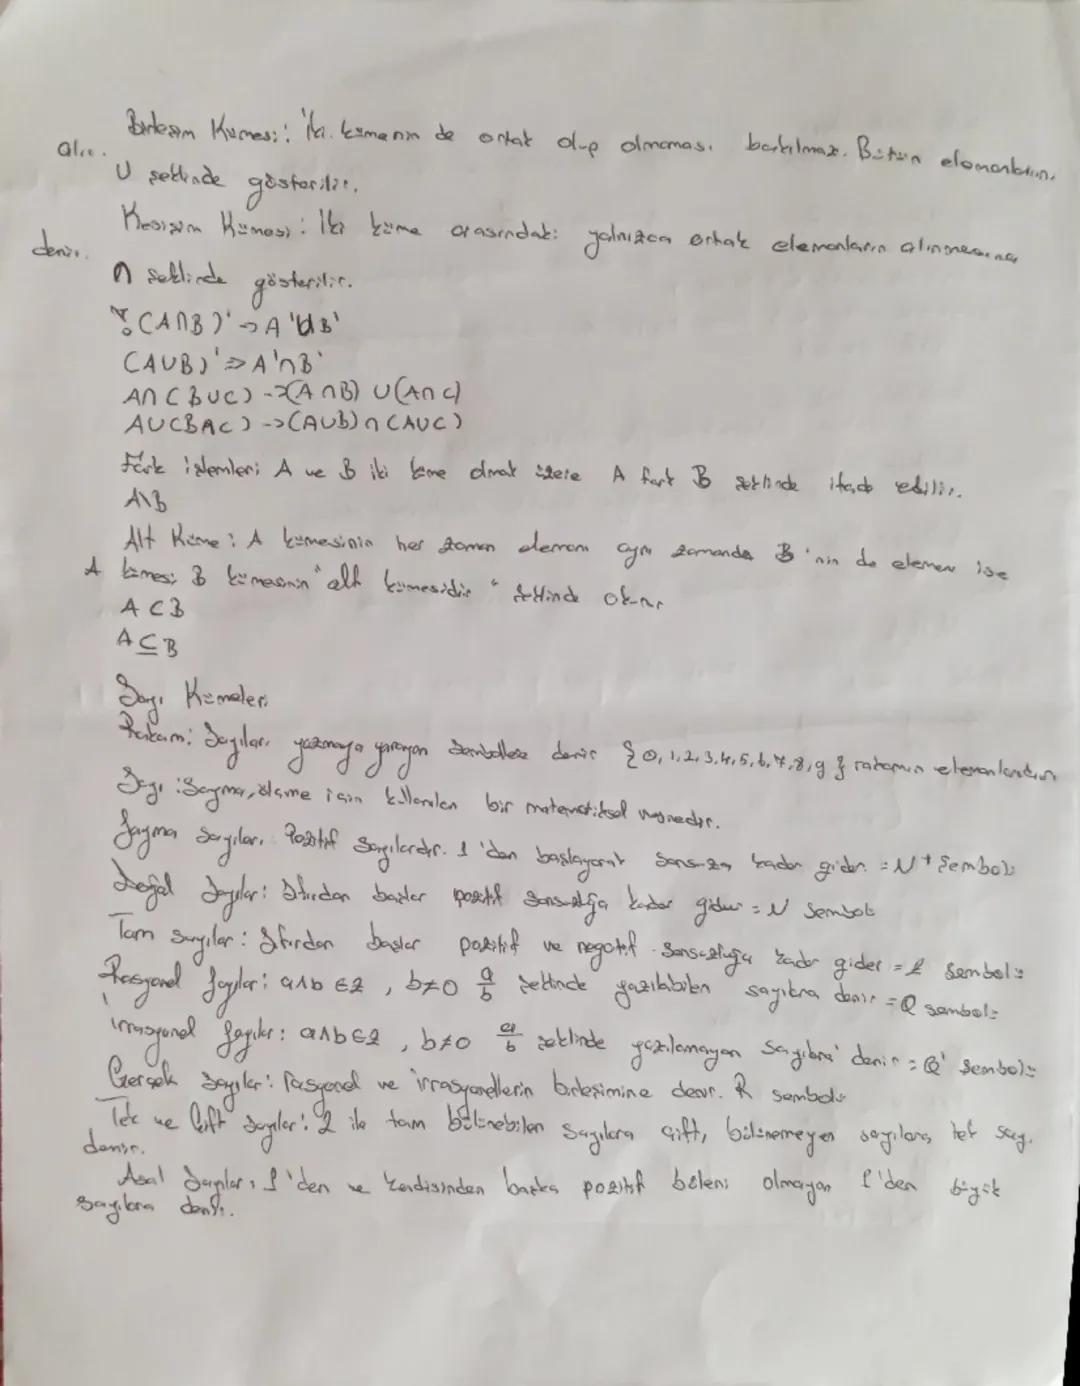 Birleşim Kümesi: İki kümenin de ortak olup olmaması bakılmaz. Bütün elemanlarını
alır.
U şeklinde gösterilir.
Kesişim Kümesi: İki küme arasındaki yalnızca ortak elemanların alınmasına
denir.
∩ şeklinde gösterilir.
(A∩B)' → A'UB'
(AUB)' => A'∩B'
A∩(BUC) -> (A∩B) U (A∩C)
AU(B∩C) -> (AUB) ∩ (AUC)
Fark işlemleri A ve B iki küme olmak üzere A fark B şeklinde ifade edilir.
A\B
Alt Küme: A kümesinin her zaman elemanı aynı zamanda B'nin de elemanı ise
A kümesi B kümesinin "alt kümesidir" şeklinde okunur
A⊂B
A⊆B
Sayı Kümeleri
Rakam: Sayıları yazmaya yarayan sembollere denir {0,1,2,3,4,5,6,7,8,9} rakamın elemanlarıdır
Sayı: Sayma, ölçme için kullanılan bir matematiksel nesnedir.
Sayma sayıları: Pozitif sayılardır. 1'den başlayarak sonsuza kadar gider. = N+ Sembolü
Doğal Sayılar: Sıfırdan başlar pozitif sonsuzluğa kadar gider = N Sembolü
Tam sayılar: Sıfırdan başlar pozitif ve negatif sonsuzluğa kadar gider = Z Sembolü
Rasyonel Sayılar: a∧b ∈ Z, b≠0 a/b şeklinde yazılabilen sayılara denir = Q sembolü
İrrasyonel Sayılar: a∧b ∈ Z, b≠0 a/b şeklinde yazılamayan sayılara denir = Q' Sembolü
Gerçek sayılar: Rasyonel ve irrasyonellerin birleşimine denir. R sembolü
Tek ve Çift Sayılar: 2 ile tam bölünebilen sayılara çift, bölünemeyen sayılara tek sayı
denir.
Asal Sayılar: 1'den ve kendisinden başka pozitif böleni olmayan 1'den büyük
sayılara denir.